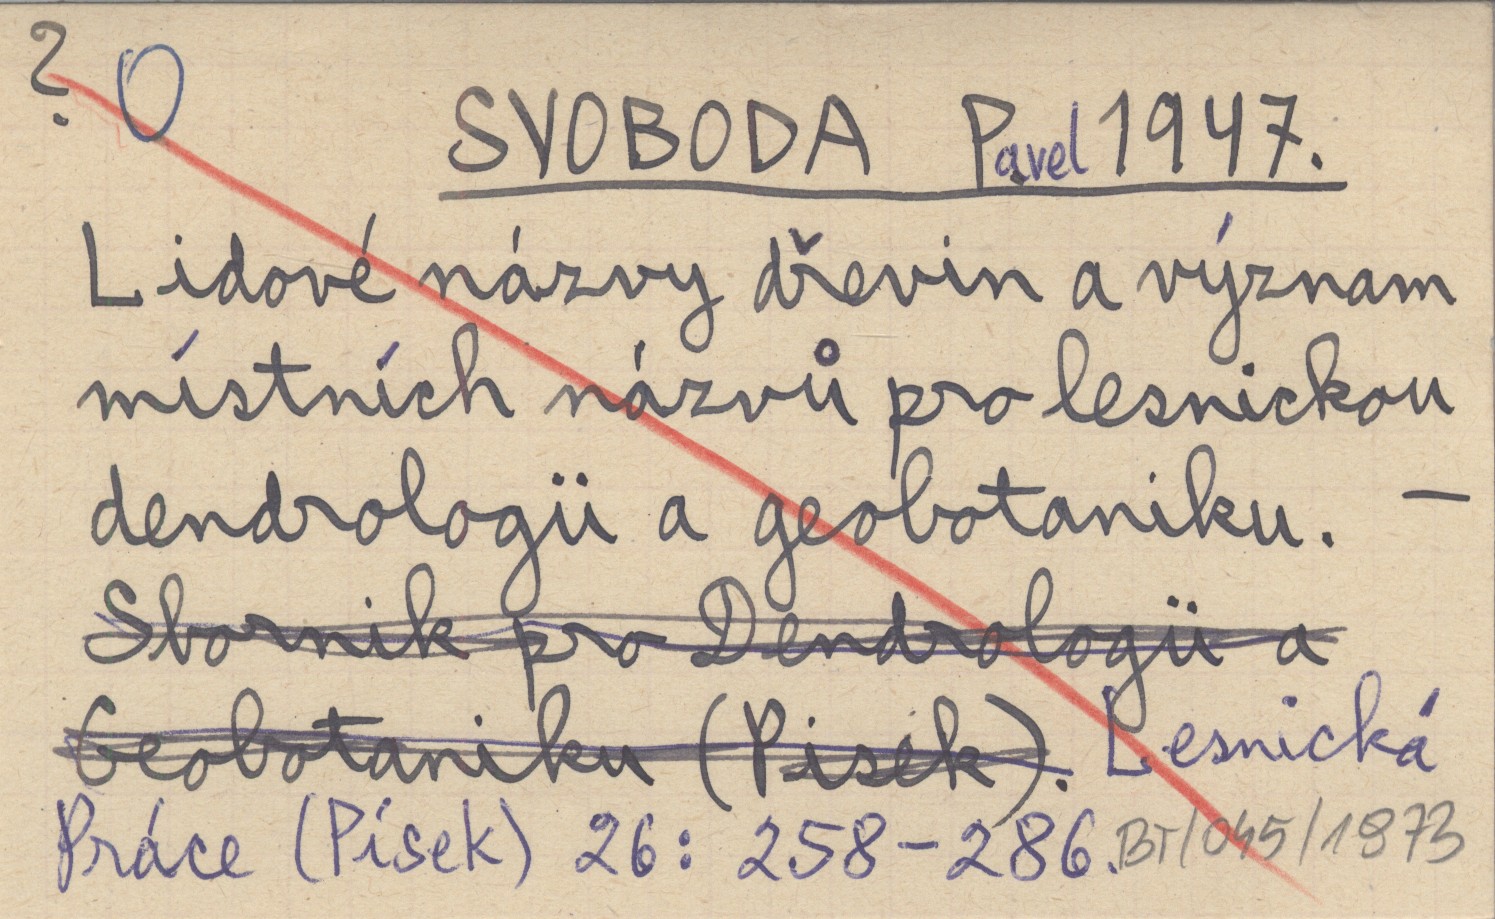 ? O
SVOBODA Pavel 1947.
Lidové názvy dřevin a význam
místních názvů pro lesnickou
dendrologii a geobotaniku. —
Sbornik pro Dendrologii a
Geobotaniku (Pisek). Lesnická
Práce (Písek) 26: 258-286. BT/045/1873